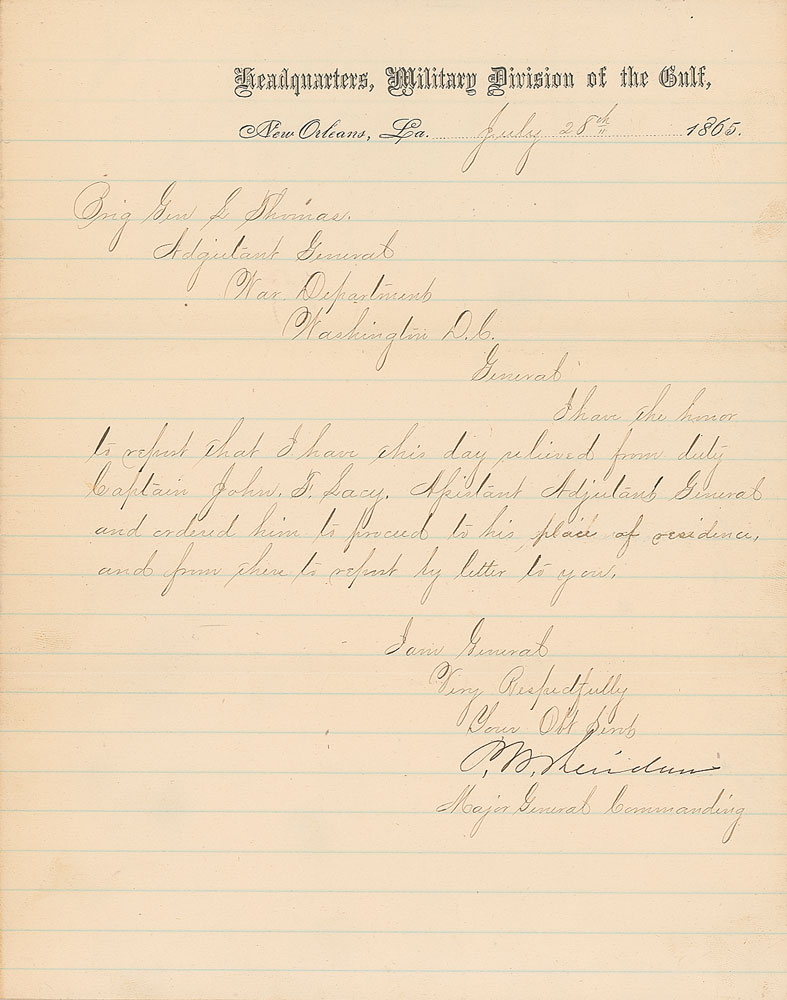 Headquarters, Military Division of the Gulf,
New Orleans, La. July 28th 1865.
Brig Gen L Thomas.
Adjutant General
War Department
Washington D.C.
General
I have the honor
to report that I have this day relieved from duty
Captain John. F. Lacy. Assistant Adjutant General
and ordered him to proceed to his place of residence,
and from there to report by letter to you.
I am General
Very Respectfully
Your Obt Servt
P. H. Sheridan
Major General Commanding